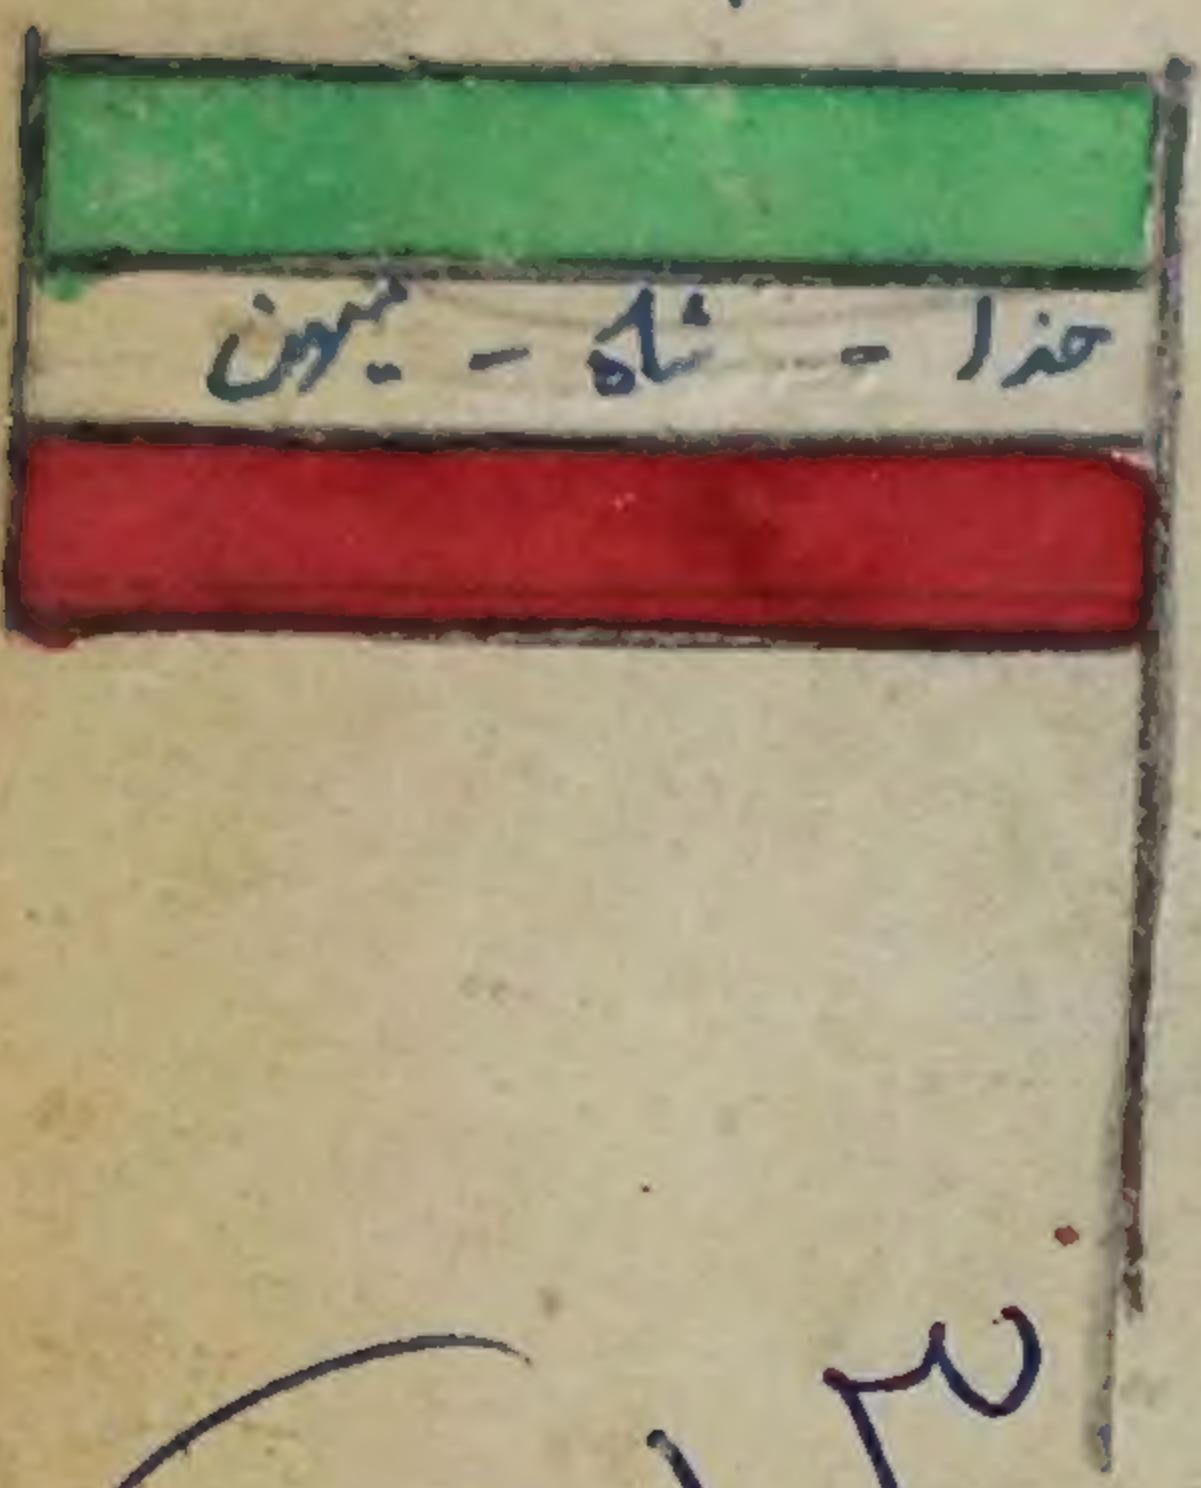 خدا - شاه - میهن